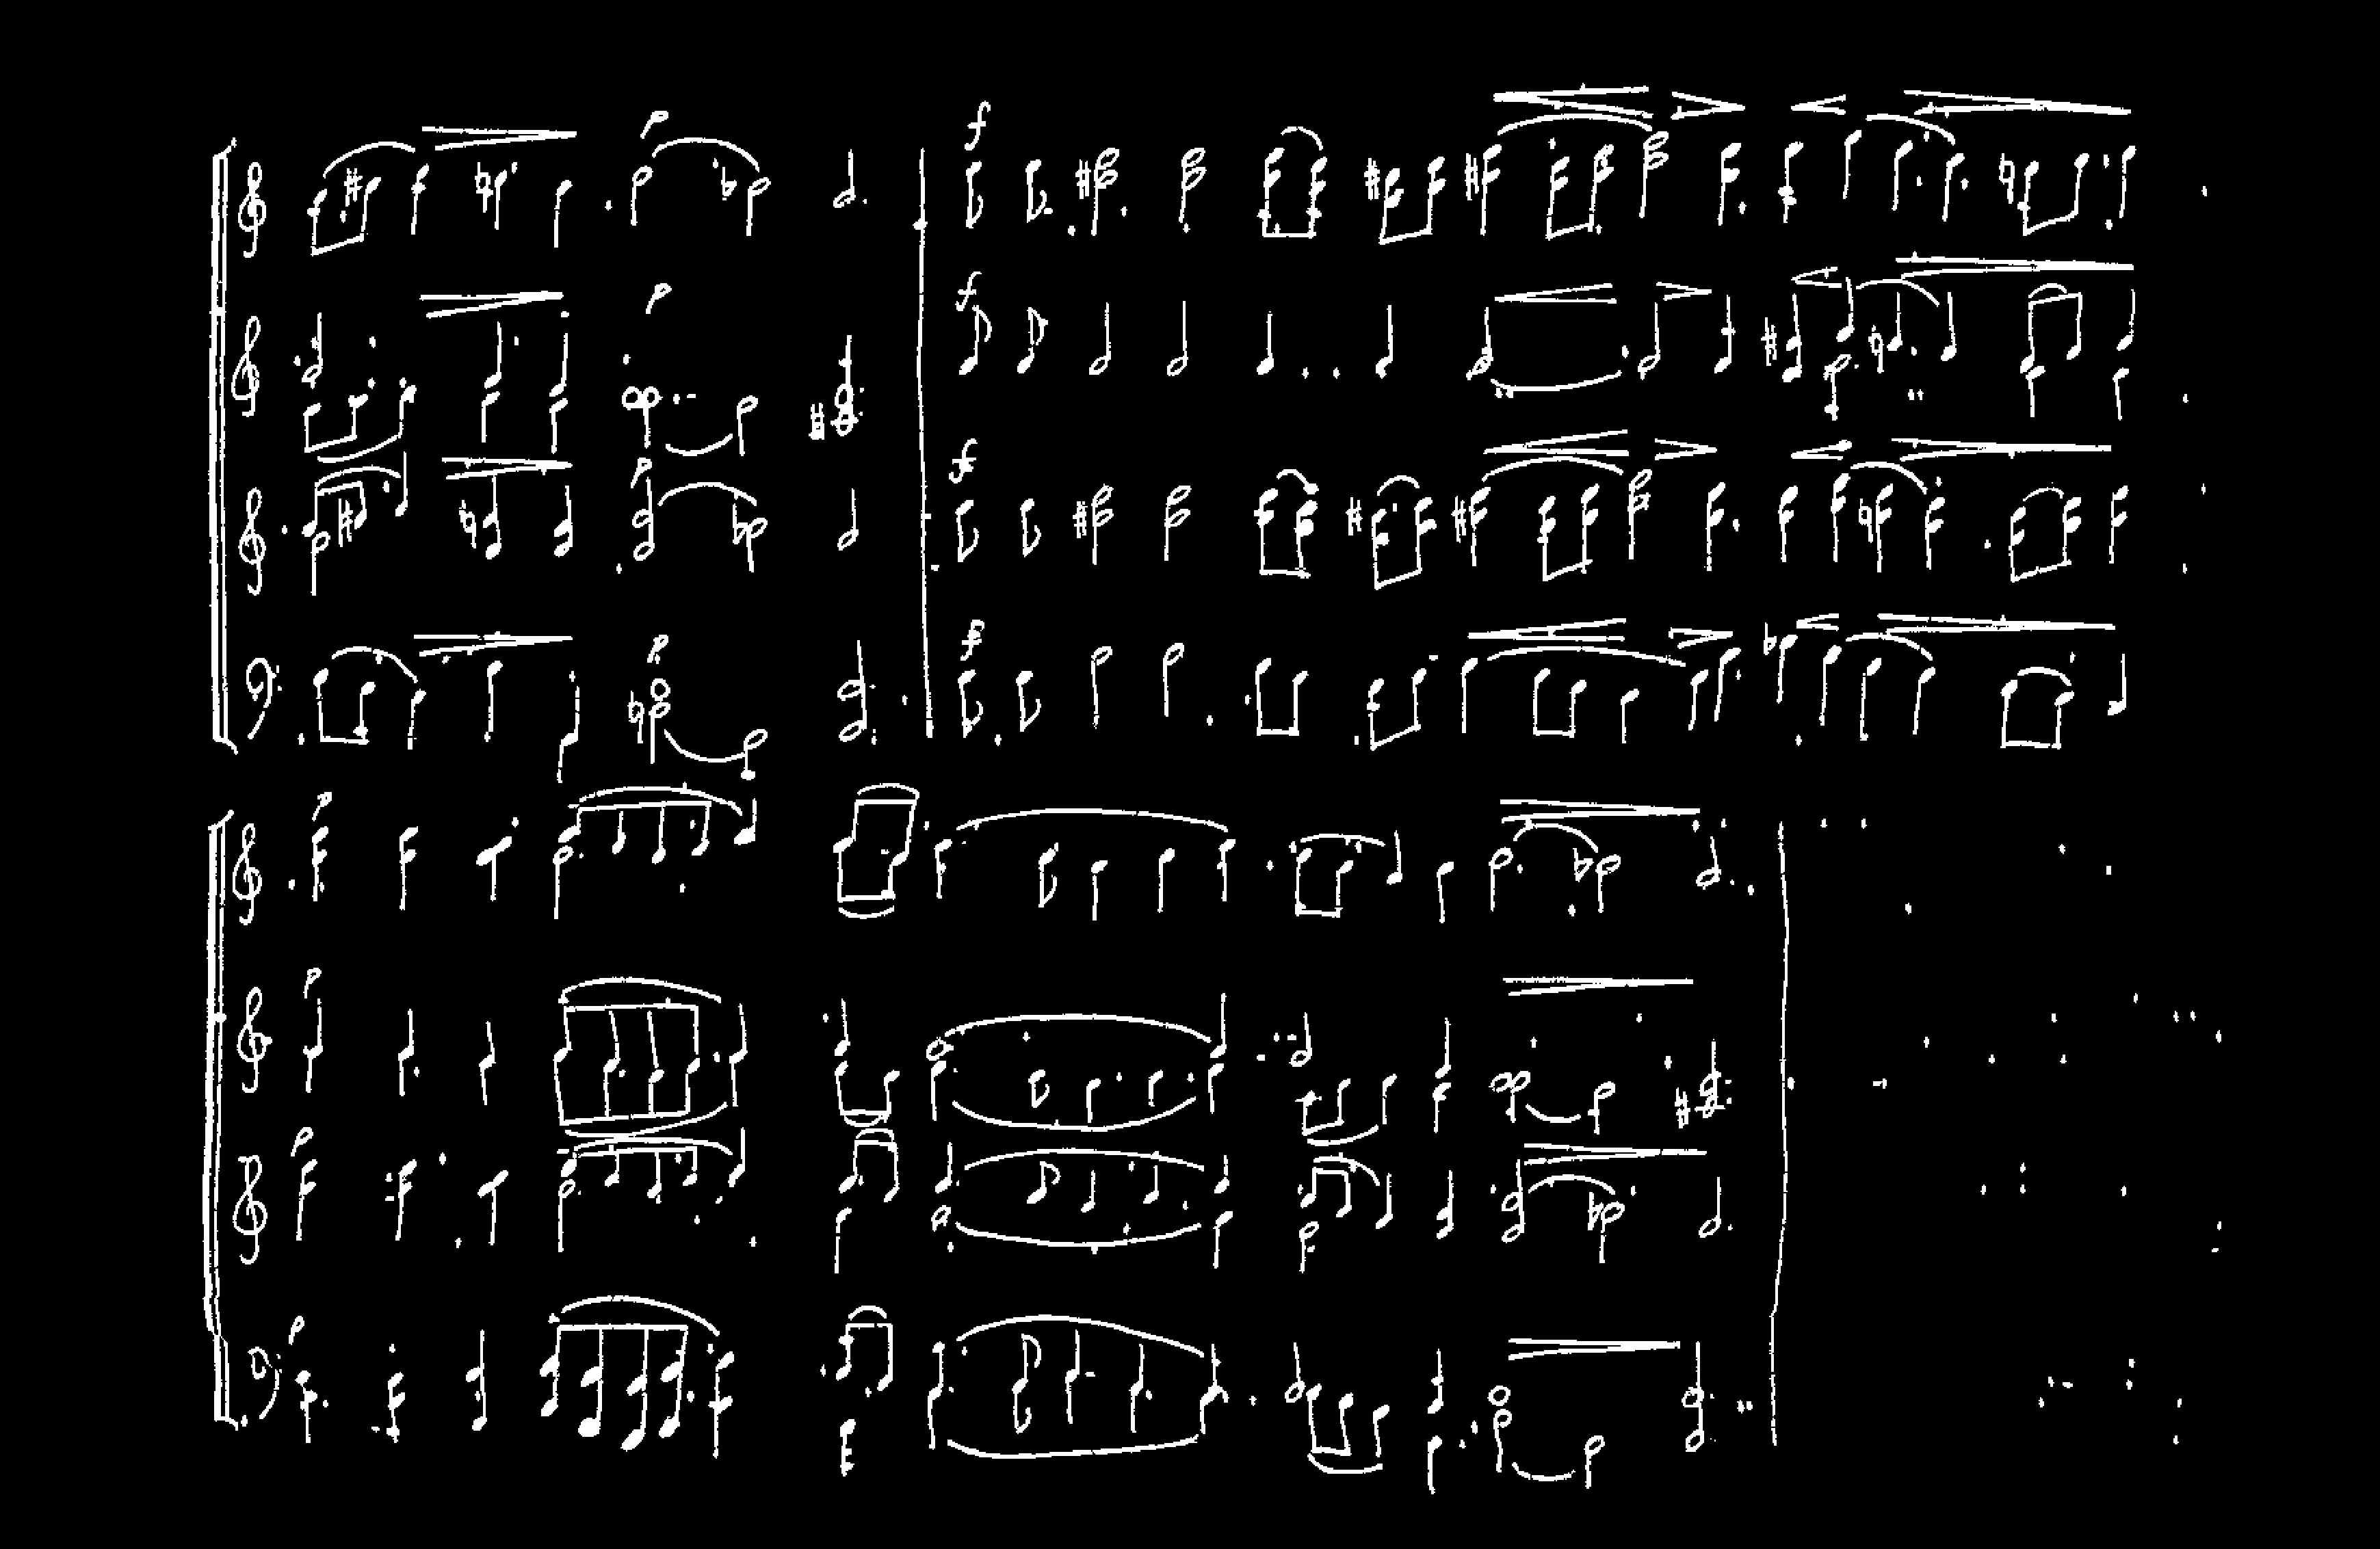 p p f
p f
p f
p f
p
p
p
p